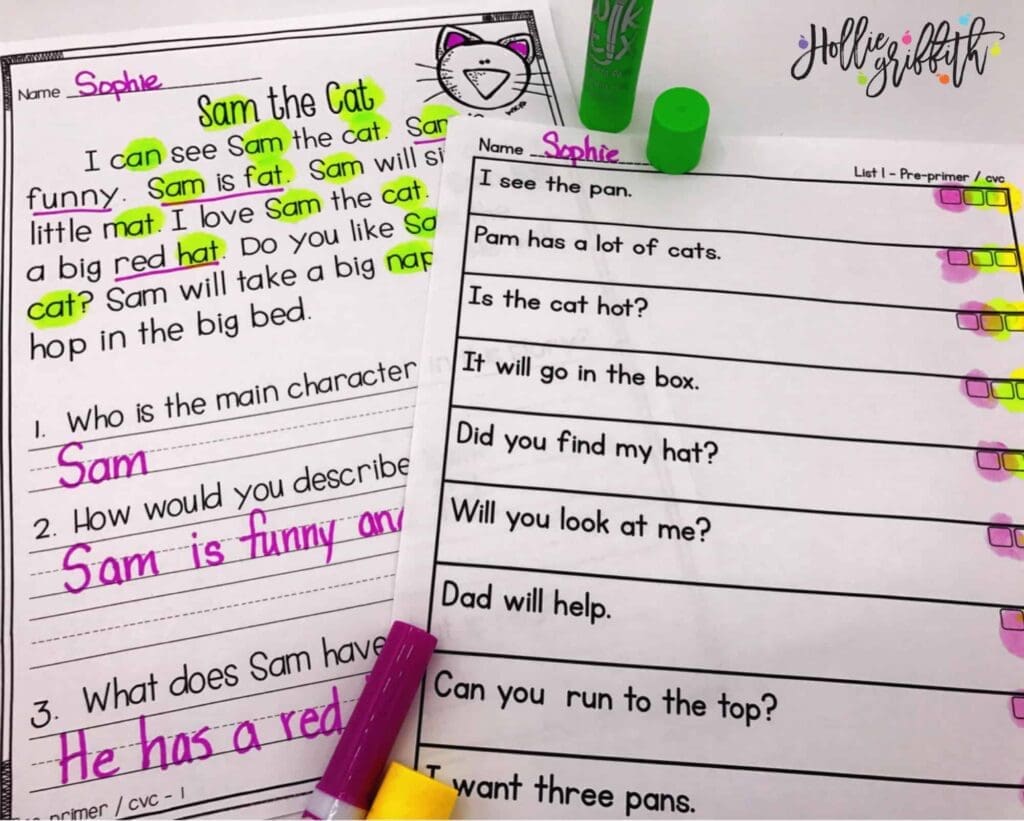 Hollie Griffith
Name Sophie
Sam the Cat
I can see Sam the cat. Sam
funny. Sam is fat. Sam will
little mat. I love Sam the cat.
a big red hat. Do you like
cat? Sam will take a big nap
hop in the big bed.
1. Who is the main character
Sam
2. How would you describe
Sam is funny
3. What does Sam have
He has a red
primer / cvc - 1
Name Sophie
List 1 - Pre-primer / cvc
I see the pan.
Pam has a lot of cats.
Is the cat hot?
It will go in the box.
Did you find my hat?
Will you look at me?
Dad will help.
Can you run to the top?
I want three pans.